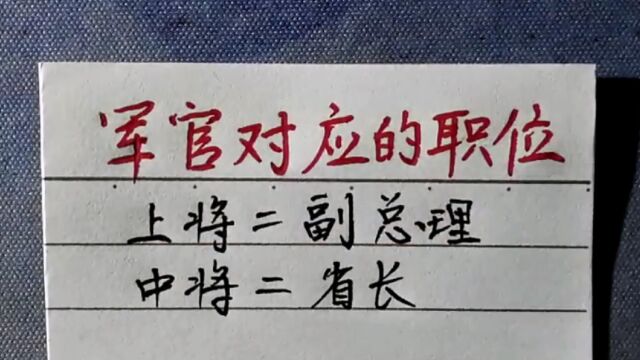 军官对应的职位
上将=副总理
中将=省长